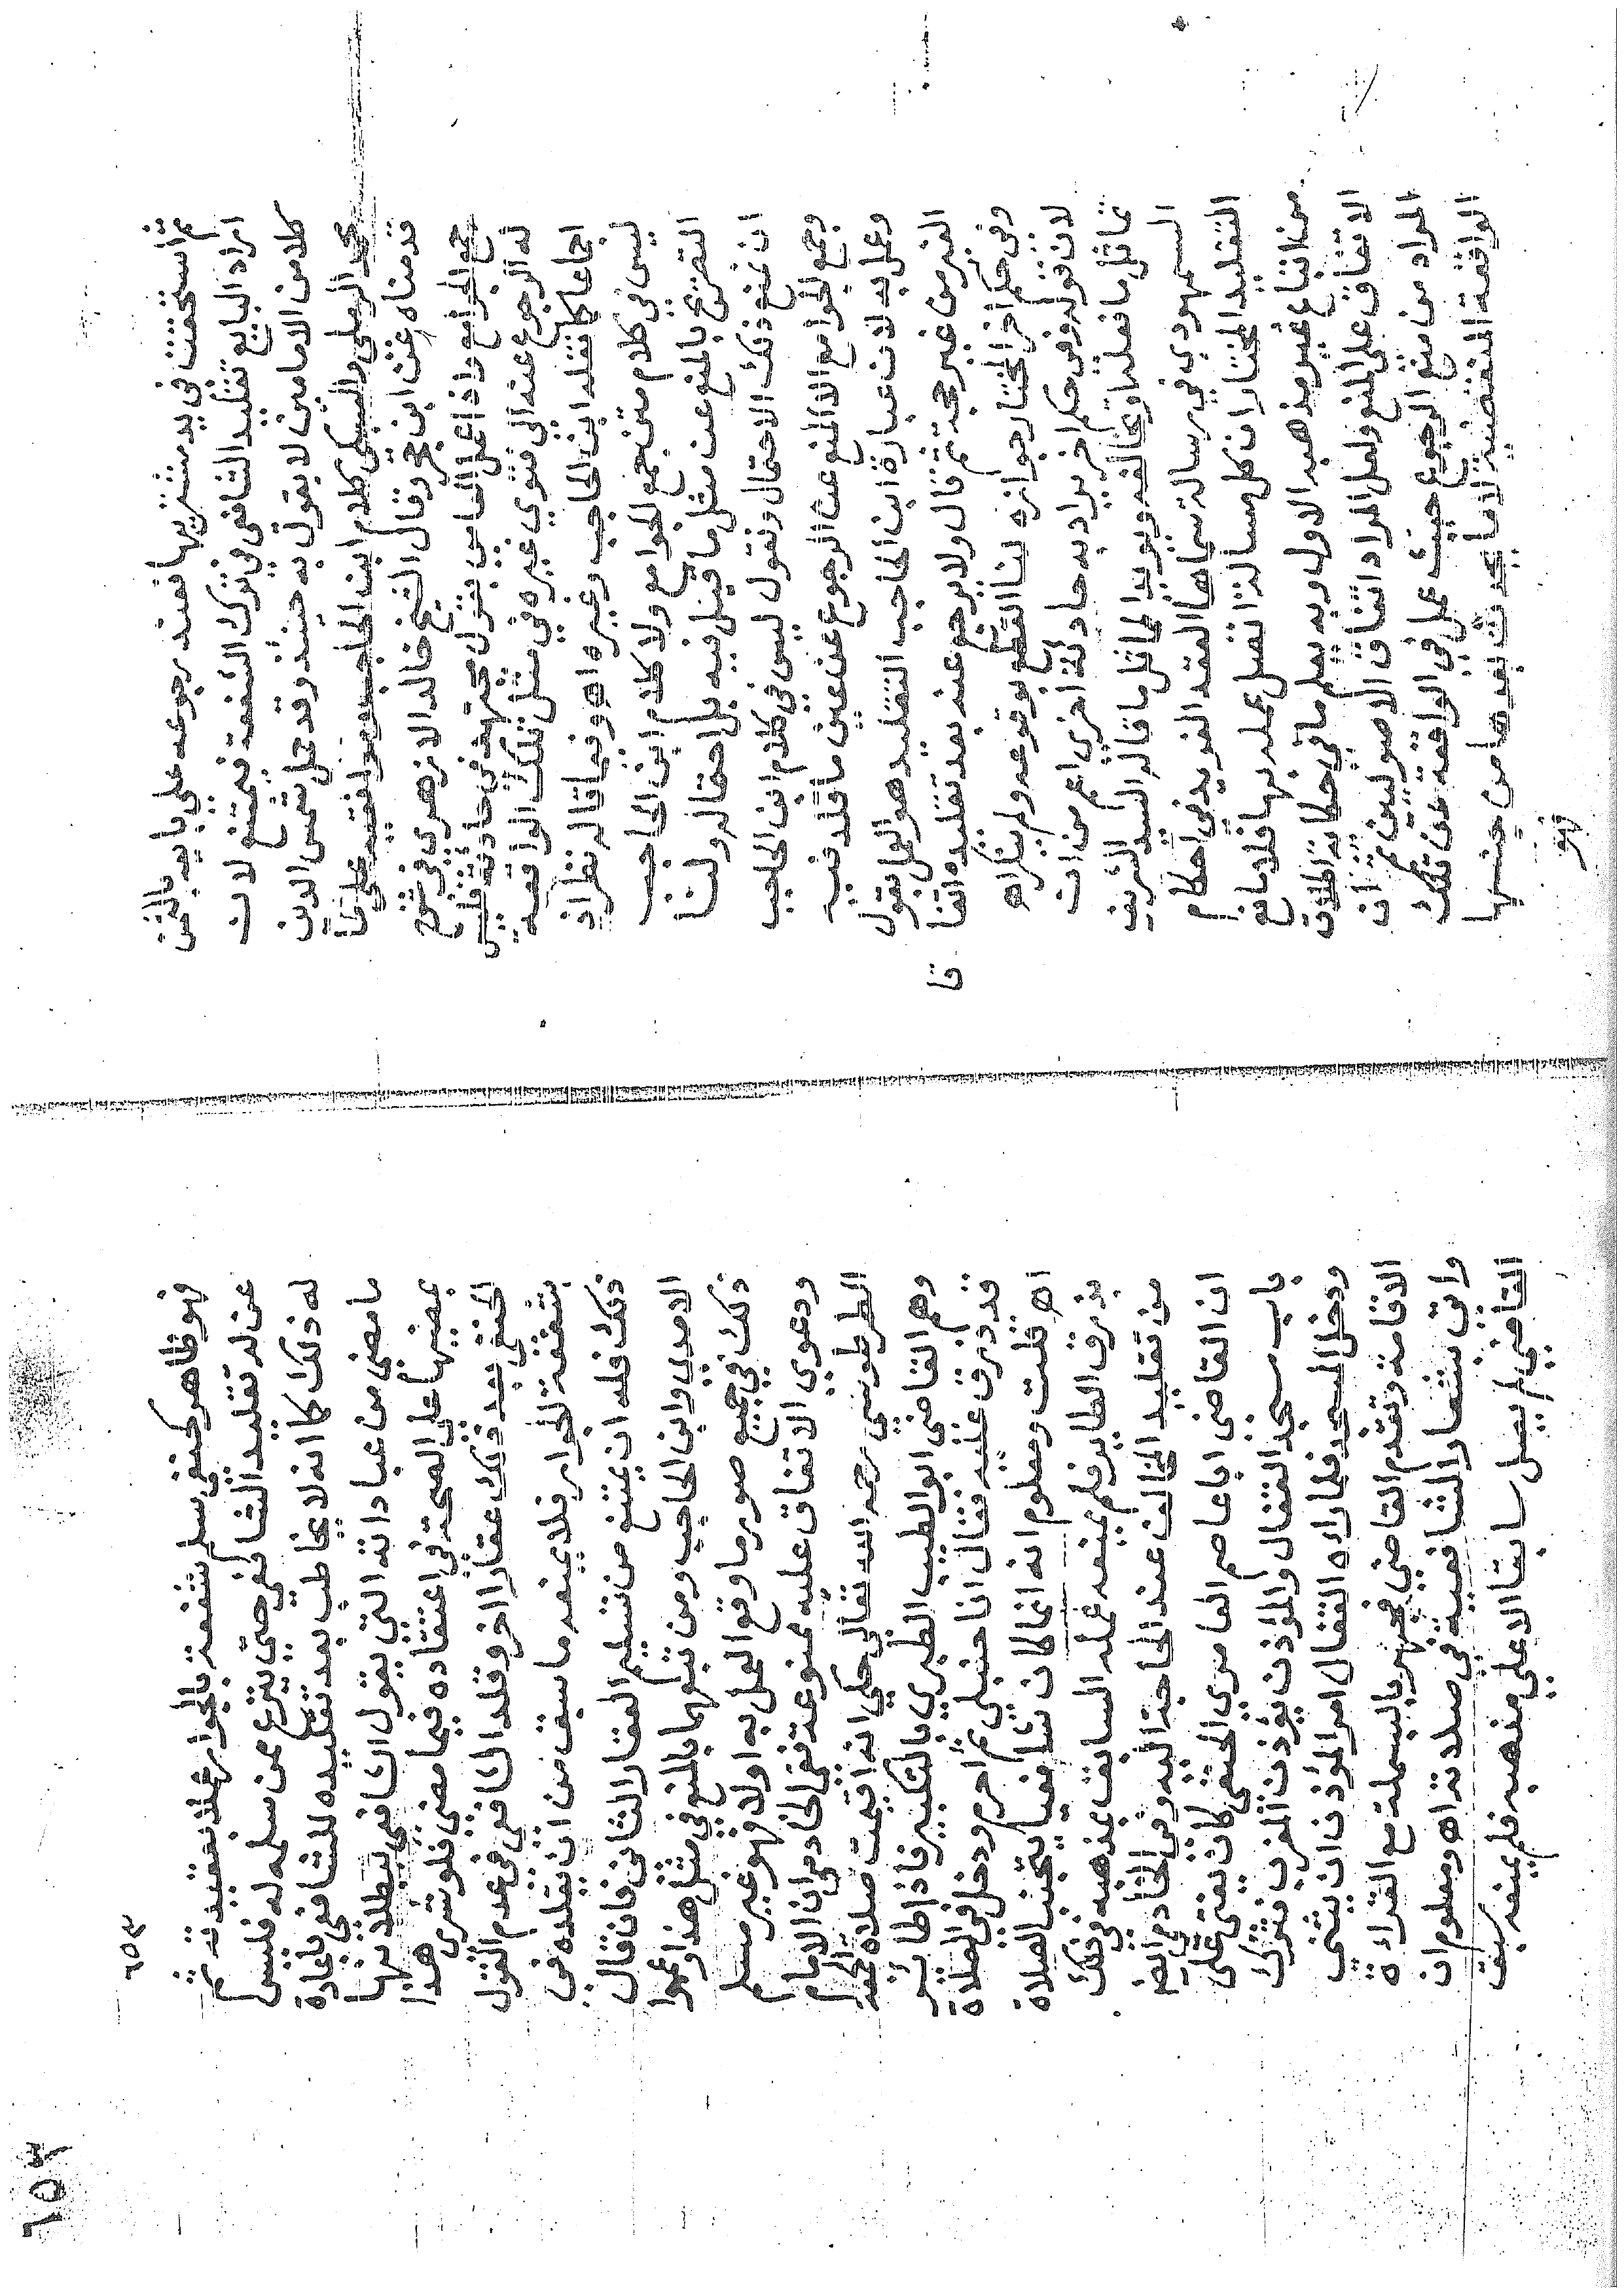 ثم استحقت في يد مشتريها فعند رجوعه على بايعه بالثمن
اراد البايع تقليد الشافعي في ترك الشفعة فيمتنع لان
كلا من الامامين لا يقول به حينئذ وقد حمل شمس الدين
محمد الرملي والسبكي كلام ابن الحاجب
قدمناه عن ابن حجر وقال الشيخ خالد الازهري في شرح
جمع الجوامع واذا عمل العامي بقول مجتهد في حادثة فليس
له الرجوع عنه الى فتوي غيره في مثل تلك الواقعة
اجماعا كما نقله ابن الحاجب وغيره اه وفيما قاله نظر اذ
ليس في كلام متن جمع الجوامع ولا كلام ابن الحاجب
التصريح بالمنع عن مثل ما قيل فيه بل احتماله ولنا
ان نمنع ذلك الاحتمال ونقول ليس في كلام ابن الحاجب
وجمع الجوامع الا المنع عن الرجوع عن عين ما قلد فيه
وعمل به لان عبارة ابن الحاجب التقليد هو العمل بقول
الغير من غير حجة ثم قال ولا يرجع عنه بعد تقليده اتفا
قا
وفي حكم اخر المختار جوازه لنا القطع بوقوعه ولم ينكر اه
لان قوله وفي حكم اخر يراد به حادثة اخرى اعم من ان
تماثل ما فعله او تخالفه ويويد المماثل ما قاله السيد الشريف
السمهودي في رسالة سماها العقد الفريد في احكام
التقليد المختار ان كل مسألة اتصل عمله بها فلا مانع
من اتباع غير مذهبه الاول وبه يعلم ما في حكاية اطلاق
الاتفاق على المنع ولعل المراد اتفاق الاصوليين ثم ان
المراد من منع الرجوع حيث عمل في الواقعة عين تلك
الواقعة المنقضية لا ما يحدث بعدها من جنسها
فهو
٦٥٣
فهو ظاهر كحنفي سلم شفعة بالجوار عملا بعقيدته ثم
عن له تقليد الشافعي حتى ينزع ممن سلمه له فليس
له ذلك كما انه لا يخاطب بعد تقليده للشافعي باعادة
ما مضى من عباداته التي يقول الشافعي ببطلانها
بمضيها على الصحة في اعتقاده فيما مضى فلو شرى هذا
الحنفي بعد ذلك عقارا اخر وقلد الشافعي في عدم القول
بشفعة الجوار فلا يمنعه ما سبق من ان يقلده في
ذلك فله ان يمتنع من تسليم العقار الثاني فان قال
الامدي وابن الحاجب ومن تبعهما بالمنع في مثل هذا وعمموا
ذلك في جميع صور ما وقع العمل به اولا فهو غير مسلم
ودعوى الاتفاق عليه ممنوعة ففي الخادم ان الامام
الطرطوسي رحمه الله تعالى حكى انه اقيمت صلاة الجمعة
وهم القاضي ابو الطيب الطبري بالتكبير فاذا طائر
قد ذرق عليه فقال انا حنبلي ثم احرم ودخل في الصلاة
اه قلت ومعلوم انه انما كان شافعيا يتجنب الصلاة
بذرق الطاير فلم يمنعه عمله السابق بمذهبه في ذلك
من تقليد المخالف عند الحاجة اليه وفي الخادم ايضا
ان القاضي ابا عاصم العامري الحنفي كان يفتي على
باب مسجد القفال والموذن يؤذن المغرب فترك
ودخل المسجد فلما راه القفال امر الموذن ان يثني
الاقامة وتقدم القاضي فجهر بالبسملة مع القراءة
واتى بشعار الشافعية في صلاته اه ومعلوم ان
القاضي لم يصل سابقا الا على مذهبه فلم يمنعه سبق
٦٥٣